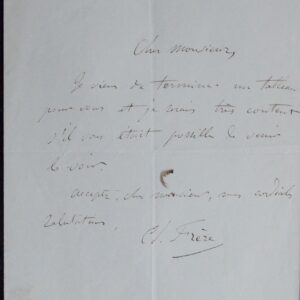 Cher Monsieur,
Je viens de terminer un tableau
pour vous et je serais très content
s'il vous était possible de venir
le voir.
Acceptez, cher monsieur, mes cordiales
salutations,
Ch. Frère